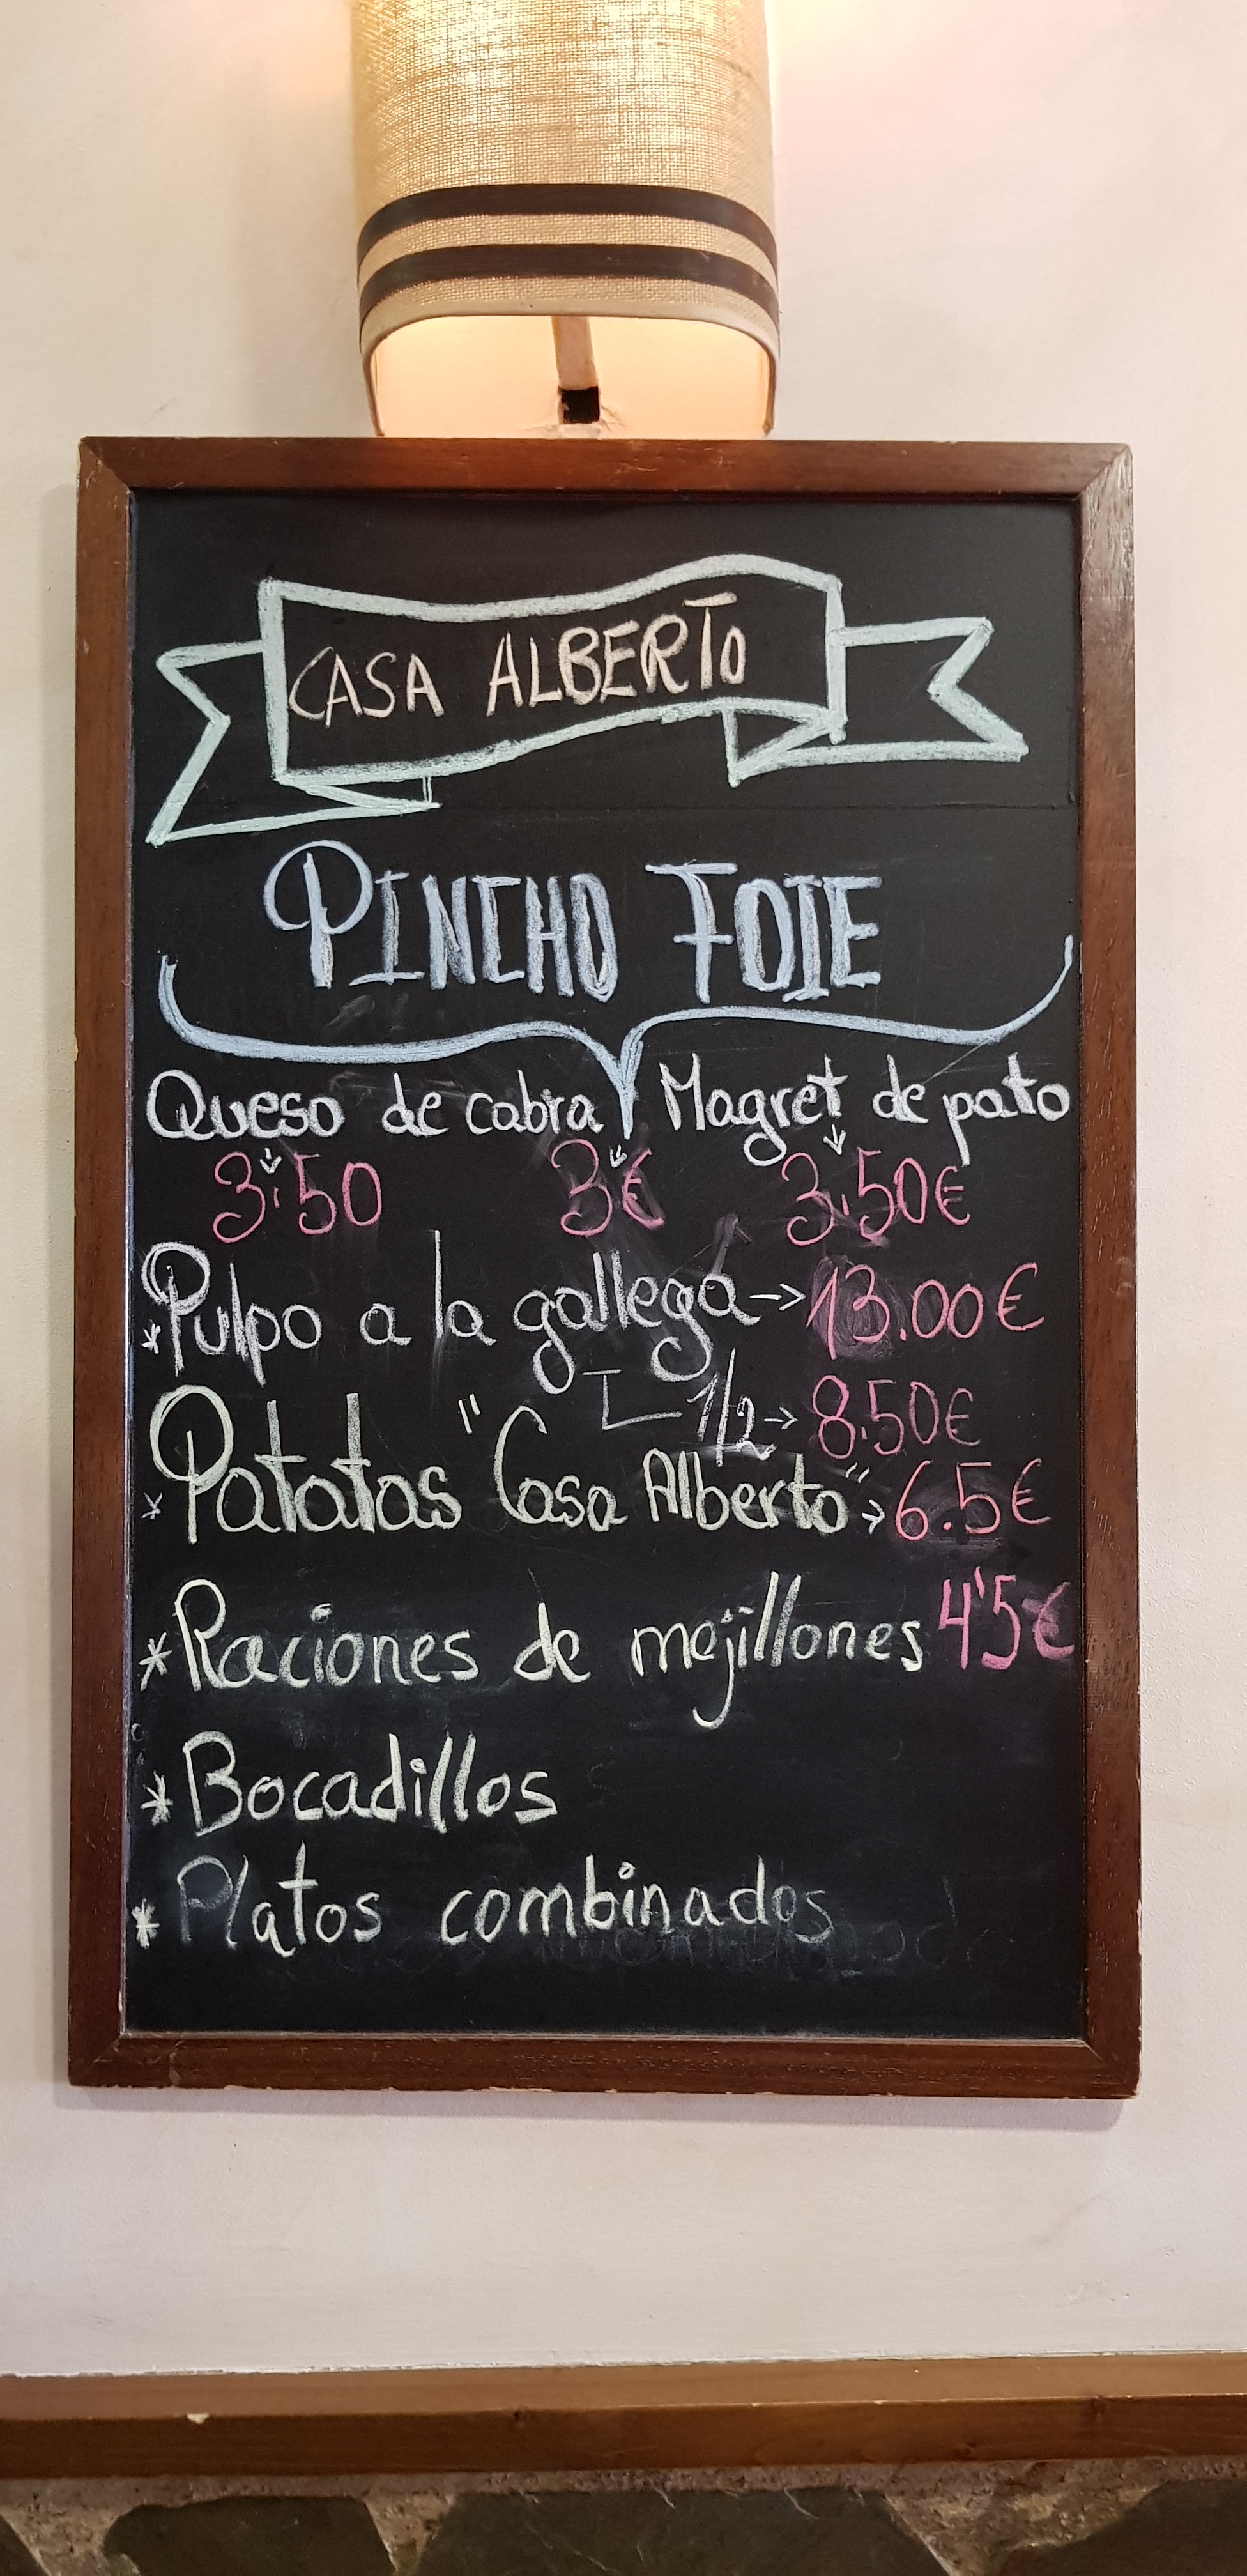 CASA ALBERTO
PINCHO FOIE
Queso de cabra Magret de pato
3.50 3€ 3.50€
*Pulpo a la gallega → 13.00€
1/2 → 8.50€
*Patatas "Casa Alberto" → 6.5€
*Raciones de mejillones 4'5€
*Bocadillos
*Platos combinados